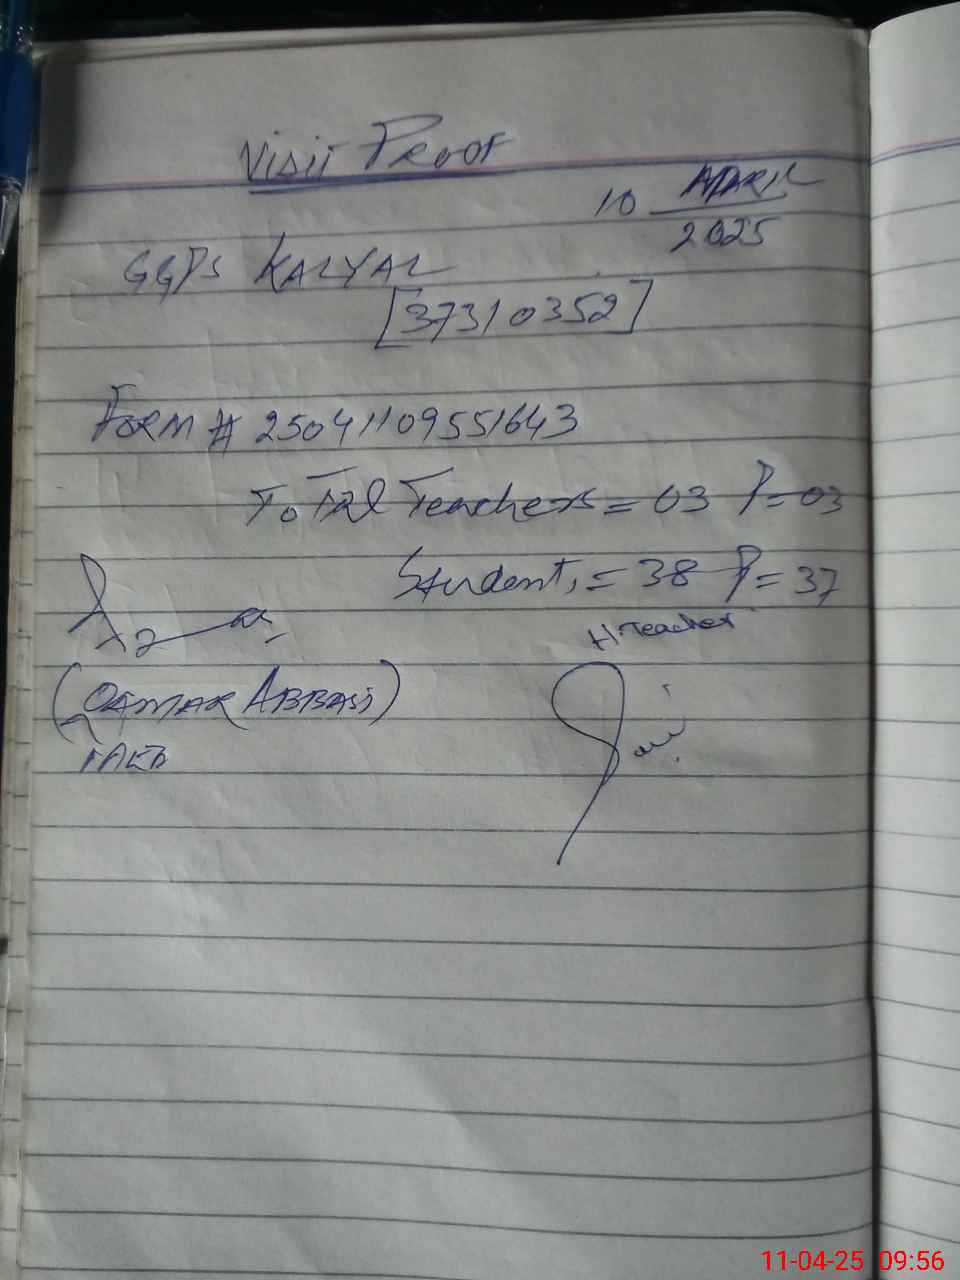 Visit Proof
10 APRIL
2025
GGPS KALYAL
[37310352]
Form # 25041109551643
ToTal Teachers = 03 P = 03
Students = 38 P = 37
H.Teacher
(QAMAR ABBAS)
11-04-25 09:56